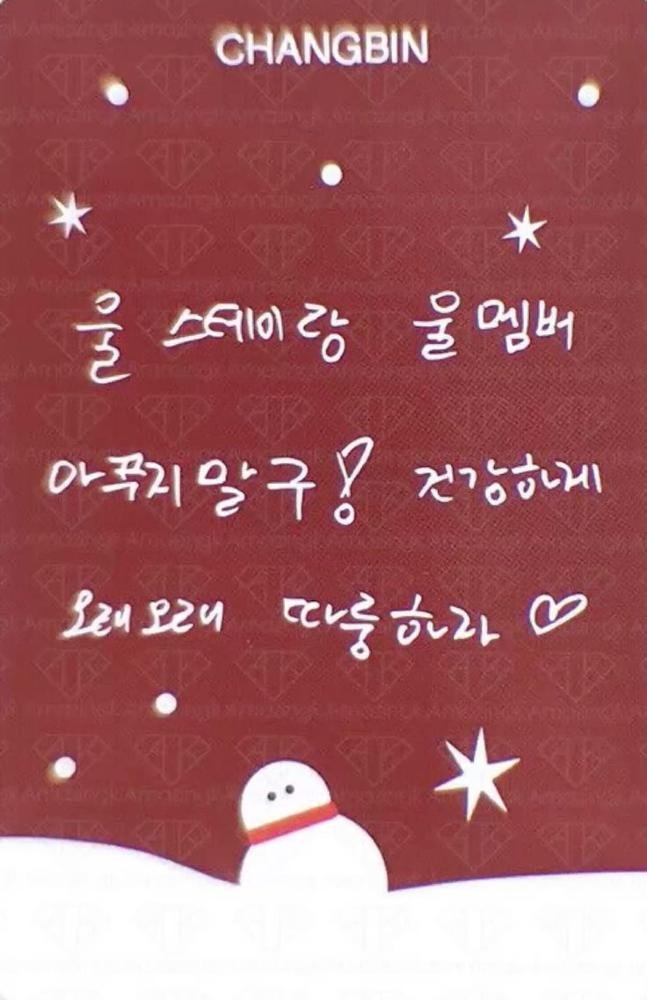 CHANGBIN
울 스테이랑 울 멤버
아푸지 말구! 건강하게
오래오래 따룽하라 ♡